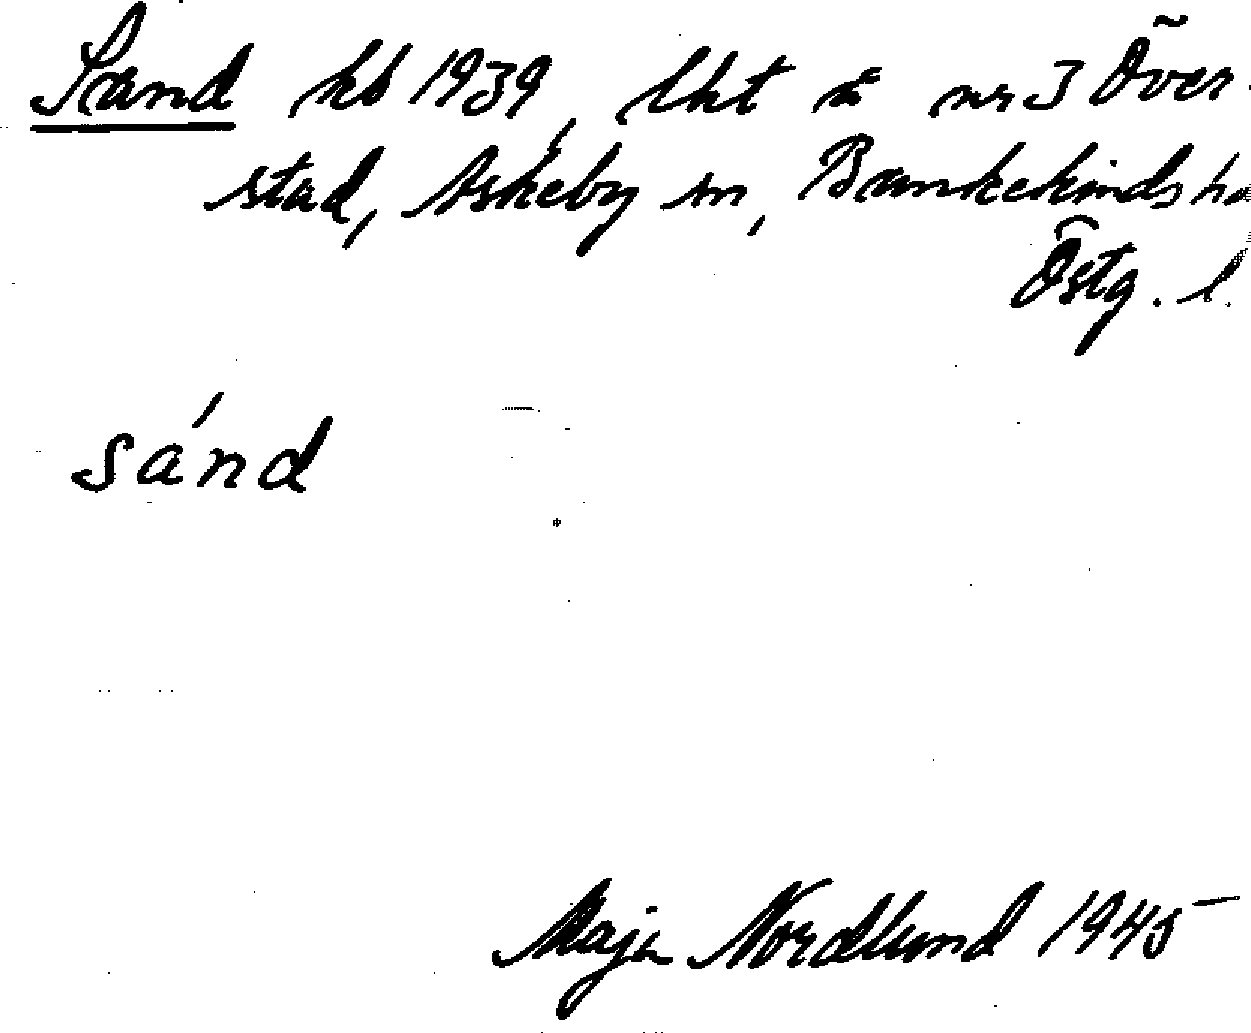 Sand kb 1939, lht å nr 3 Över-
stad, Askeby sn, Bankekinds hd
Östg. l.
sánd
Maja Nordlund 1945